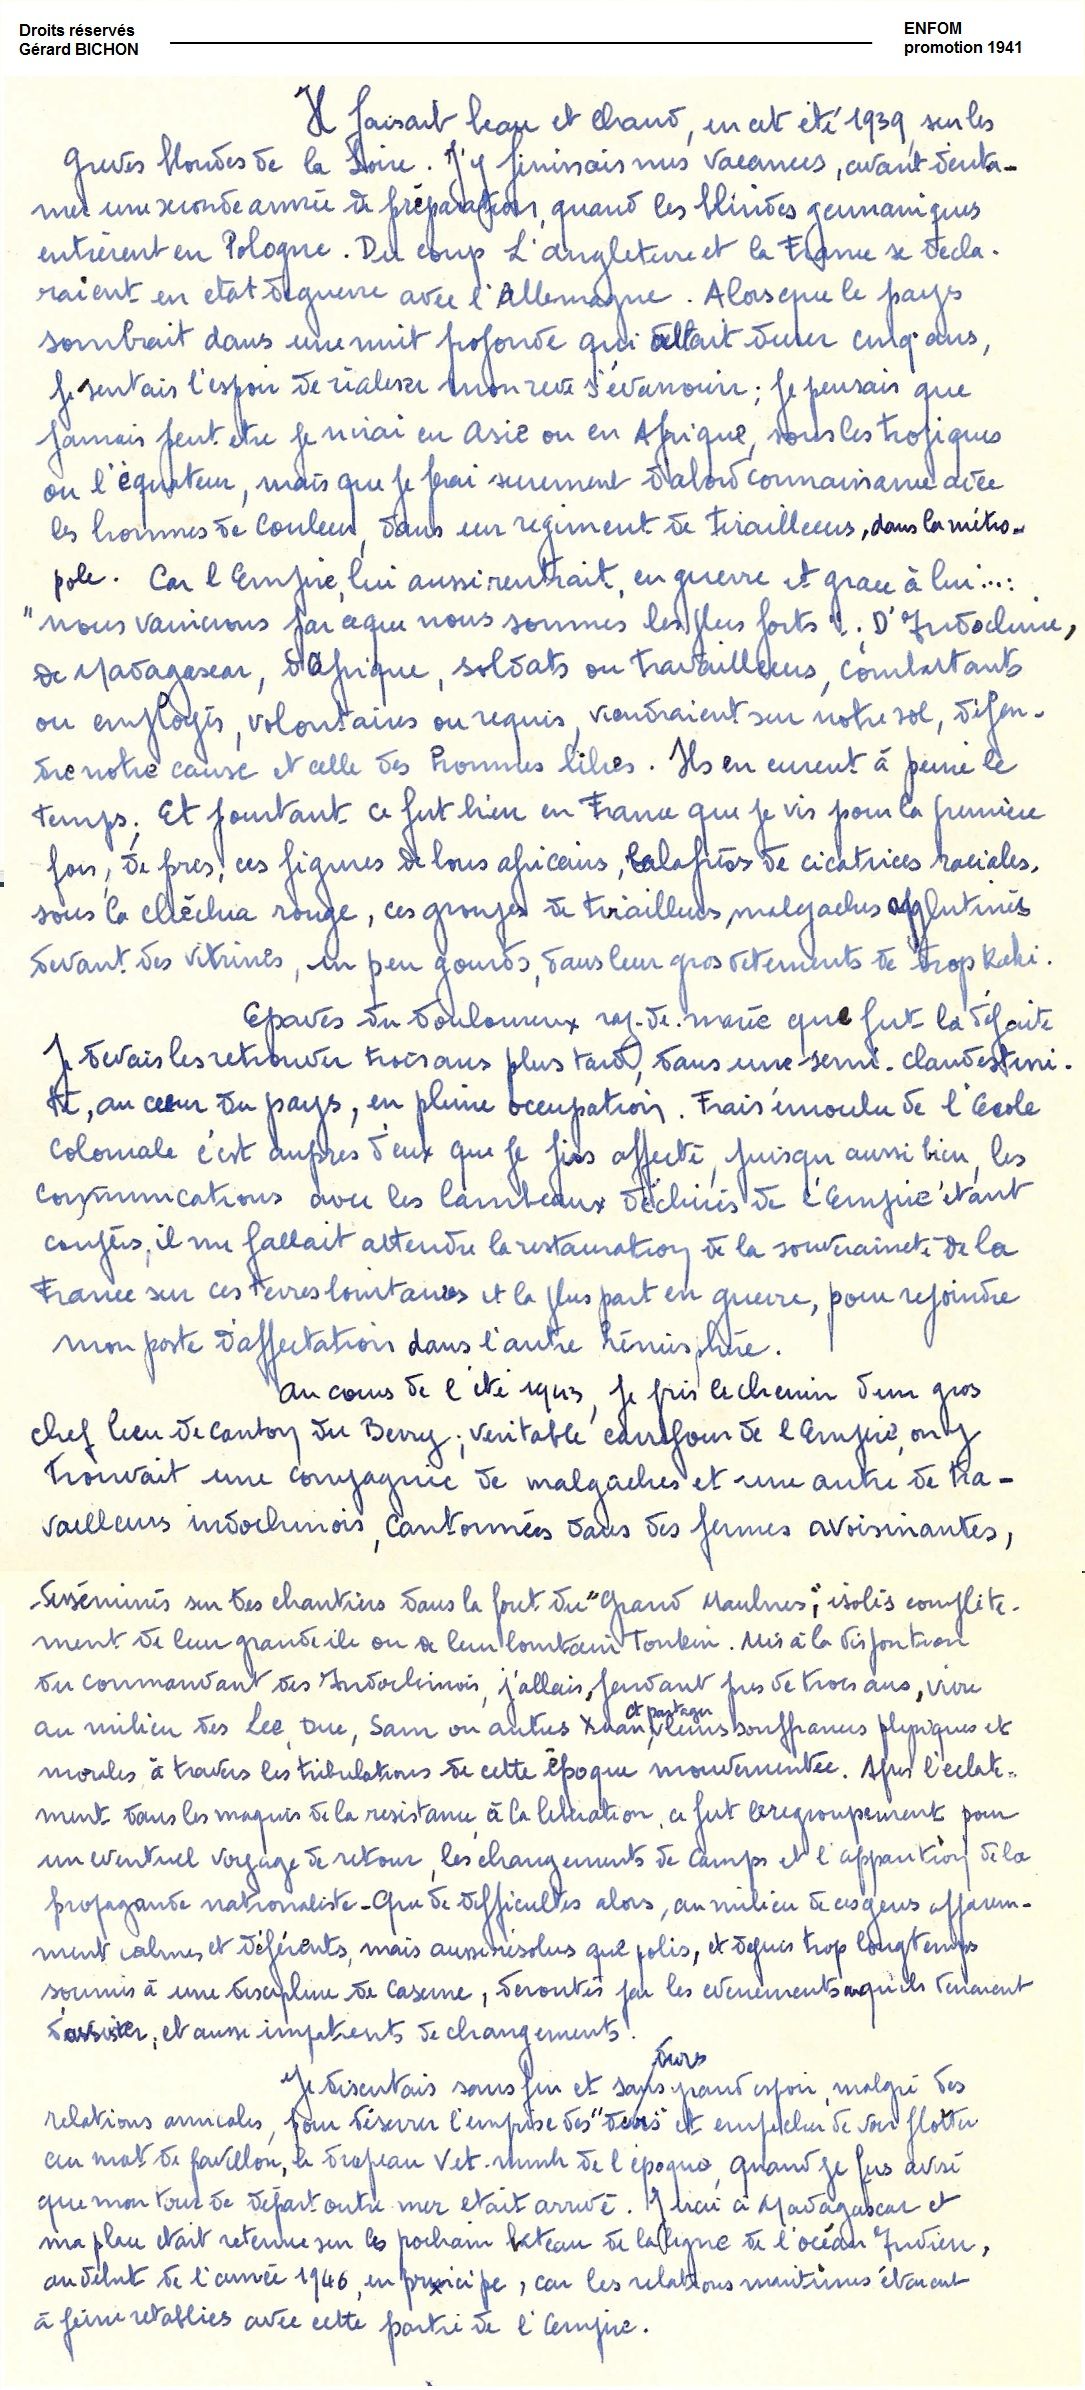 Droits réservés
Gérard BICHON
ENFOM
promotion 1941
Il faisait beau et chaud, en cet été 1939, sur les
greves blondes de la Loire. J'y finissais mes vacances, avant d'enta-
mer une seconde année de préparation, quand les blindés germaniques
entrèrent en Pologne. Du coup L'angleterre et la France se décla-
raient en etat de guerre avec l'Allemagne. Alors que le pays
sombrait dans une nuit profonde qui allait durer cinq ans,
je sentais l'espoir de réaliser mon reve s'évanouir ; je pensais que
jamais peut etre je n'irai en Asie ou en Afrique, sous les tropiques
ou l'équateur, mais que je ferai surement d'abord connaissance avec
les hommes de couleur, dans un regiment de tirailleurs, dans la métro-
pole. Car l'Empire, lui aussi rentrait, en guerre et grace à lui...:
"nous vaincrons par ce que nous sommes les plus forts". D'Indochine,
de Madagascar, d'Afrique, soldats ou travailleurs, combattants
ou employés, volontaires ou requis, viendraient sur notre sol, défen-
dre notre cause et celle des hommes libres. Ils en eurent à peine le
temps. Et pourtant ce fut bien en France que je vis pour la premiere
fois, de pres, ces figures de bons africains, balafrées de cicatrices raciales,
sous la chéchia rouge, ces groupes de tirailleurs malgaches agglutinés
devant des vitrines, un peu gourds, dans leur gros vetements de drap kaki.
Epaves du douloureux raz-de-marée que fut la défaite
Je devais les retrouver trois ans plus tard, dans une semi-clandestini-
té, au cœur du pays, en pleine occupation. Frais émoulu de l'Ecole
Coloniale c'est aupres d'eux que je fus affecté, puisqu'aussi bien, les
communications avec les lambeaux déchirés de l'Empire étant
coupées, il me fallait attendre la restauration de la souveraineté de la
France sur ces terres lointaines et la plus part en guerre, pour rejoindre
mon poste d'affectation dans l'autre hémisphère.
Au cours de l'été 1943, je pris le chemin d'un gros
chef lieu de canton du Berry ; veritable carrefour de l'Empire, on y
trouvait une compagnie de malgaches et une autre de tra-
vailleurs indochinois, cantonnées dans des fermes avoisinantes,
disséminés sur des chantiers dans la foret du "Grand Maulnes", isolés complète-
ment de leur grande ile ou de leur lointain Tonkin. Mis à la disposition
du commandant des Indochinois, j'allais, pendant pres de trois ans, vivre
au milieu des Lee, Duc, Sam ou autres Xuan, et partager leurs souffrances physiques et
morales à travers les tribulations de cette époque mouvementée. Apres l'éclate-
ment dans les maquis de la resistance, à la liberation, ce fut le regroupement pour
un eventuel voyage de retour, les changements de camps et l'apparition de la
propagande nationaliste. Que de difficultes alors, au milieu de ces gens apparem-
ment calmes et déférents, mais aussi résolus que polis, et depuis trop longtemps
soumis à une discipline de caserne, deroutés par les evenements auxquels ils venaient
d'assister, et aussi impatients de changements.
Je discutais sans fin et sans grand espoir, malgré des
relations amicales, pour désserrer l'emprise des "durs" et empecher de voir flotter
au mat de pavillon, le drapeau Viet-minh de l'époque, quand je fus avisé
que mon tour de départ outre mer etait arrivé. J'irai à Madagascar et
ma place etait retenue sur le prochain bateau de la ligne de l'océan Indien,
au début de l'année 1946, en principe, car les relations maritimes étaient
à peine retablies avec cette partie de l'Empire.